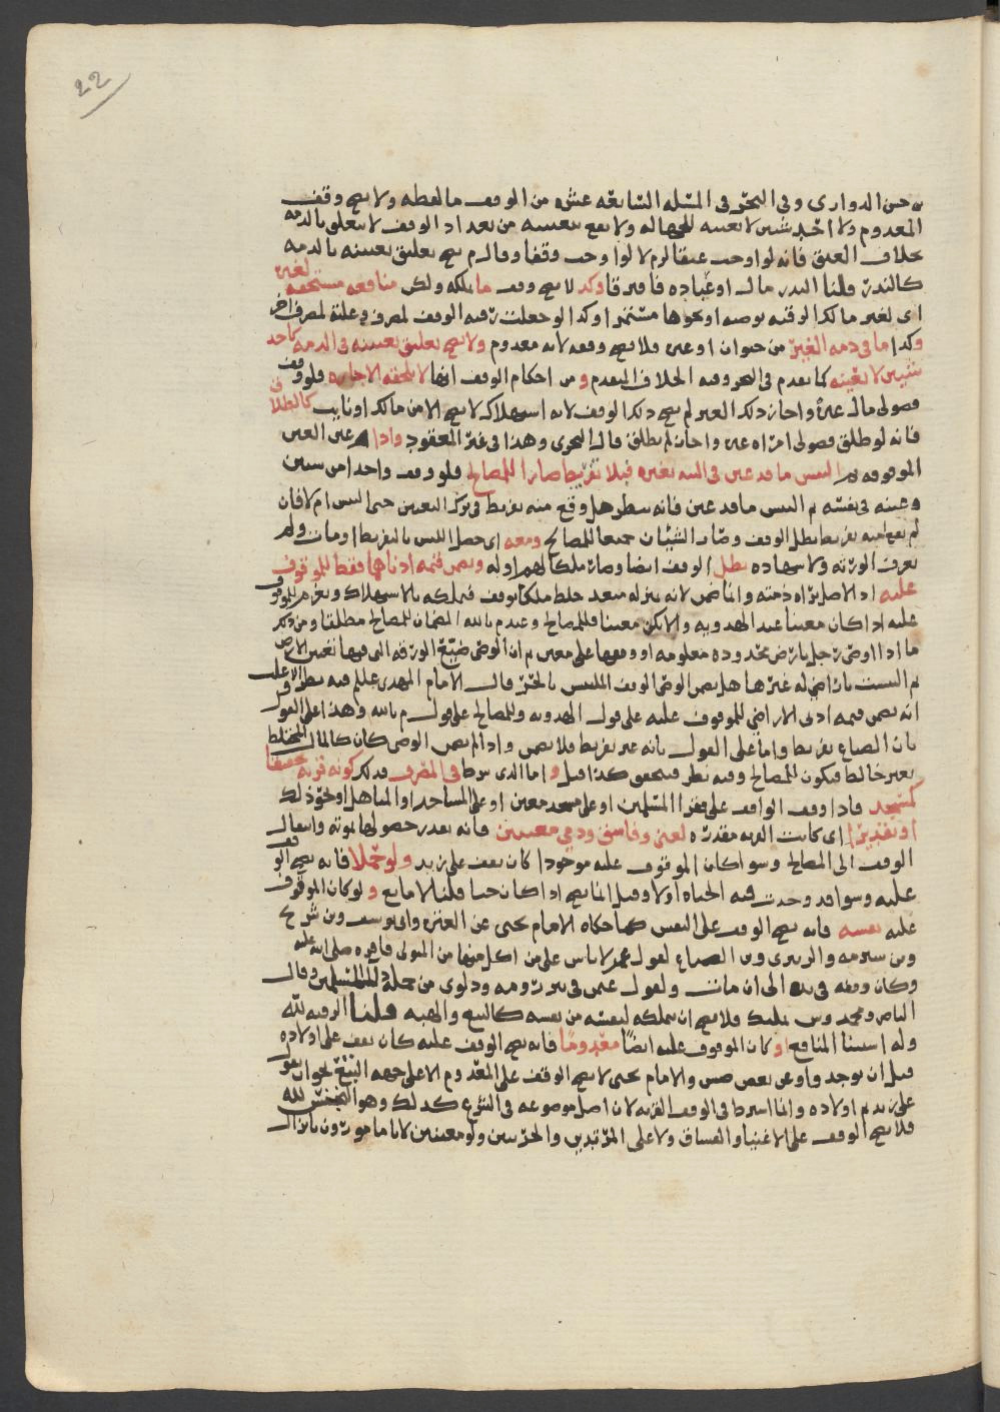 22
حسن الدواري وفي البحر في المسئلة السابعة عشر من الوقف ما لفظه ولا يصح وقف
المعدوم ولا احد شيين لا بعينه للجهالة ولا يقع تعيينه من بعد اذ الوقف لا يتعلق بالذمة
بخلاف العتق فانه لو اوجب عتقا لزم لا لو اوجب وقفا وقال م يصح تعليق تعيينه بالذمة
كالنذر قلنا النذر مال او عبادة فافترقا وكذا لا يصح وقف ما يملكه ولكن منافعه مستحقة لغيره
اي لغير مالك الرقبة بوصية او نحوها مستمرا وكذا لو جعلت رقبة الوقف لمصرف وغلته لمصرف اخر
وكذا ما في ذمة الغير من حيوان او غيره فلا يصح وقفه لانه معدوم ولا يصح تعليق تعيينه في الذمة كاحد
شيين لا بعينه كما تقدم في البحر وفيه الخلاف المتقدم ومن احكام الوقف انها لا تلحقه الاجازة فلو وقف
فضولي مال غيره واجاز ذلك الغير لم يصح ذلك الوقف لانه استهلاك لا يصح الا من مالك او نايب كالطلاق
فانه لو طلق فضولي امراة غيره واجاز لم يطلق قال النجري وهذا في غير العقود واذا عين العين
الموقوفة ثم التبس ما قد عين في النية بغيره فبلا تفريط صارا للمصالح فلو وقف واحدا من شيين
وعينه في نفسه ثم التبس ما قد عين فانه ينظر هل وقع منه تفريط في ترك التعيين حتى التبس ام لا فان
لم يقع منه تفريط بطل الوقف وصار الشيئان جميعا للمصالح ومعه اي حصل اللبس بالتفريط او مات ولم
يعرف الورثة ولا شهادة بطل الوقف ايضا وصار ملكا لهم او له وتضمن قيمة ادناهما فقط للموقوف
عليه اذ الاصل براة ذمته وانما ضمن لانه بمنزلة متعد خلط ملكا بوقف فيملكه بالاستهلاك ويغرم للموقوف
عليه اذا كان معينا عند الهدوية والا يكن معينا فللمصالح وعند م بالله الضمان للمصالح مطلقا ومن ذلك
ما اذا اوصى رجل بارض محدودة معلومة او وقفها على معين ثم ان الوصي ضيع الورقة التي فيها تعيين الارض
ثم التبست باراضي له غيرها هل يضمن الوصي الوقف الملتبس بالحر قال الامام المهدي عليلم فيه نظر الاغلب
انه يضمن قيمة ادنى الاراضي للموقوف عليه على قول الهدوية وللمصالح على قول م بالله وهذا على القول
بان الضياع تفريط واما على القول بانه غير تفريط فلا يضمن واذا لم يضمن الوصي كان كالمال المختلط
بغير خالط فيكون للمصالح وفيه نظر فيحقق كذا قيل و اما الذي شرط في المصرف فذلك كونه قربة تحقيقا
كمسجد فاذا وقف الواقف على فقراء المسلمين او على مسجد معين او على المساجد او المناهل او نحو ذلك
او تقديرا اي كانت القربة مقدرة لغني وفاسق وذمي معينين فانه يقدر حصولها بموته وانتقال
الوقف الى المصالح وسوا كان الموقوف عليه موجودا كان يقف على زيد ولو حملا فانه يصح الوقف
عليه وسوا قد وجدت فيه الحياة او لا وقيل انما يصح اذا كان حيا قلنا لا مانع ولو كان الموقوف
عليه نفسه فانه يصح الوقف على النفس كما حكاه الامام يحيى عن العترة وابي يوسف وبن شريح
وبن شبرمة والزبيري وبن الصباغ لقول عمر لا باس على من اكل منها من المتولي فاقره صلى الله عليه
وكان وقفه في يده الى ان مات ولقول عثمن في بير رومة ودلوي من جملة دلاء المسلمين وقال
الناصر ومحمد وش تمليك فلا يصح ان يملكه لنفسه من نفسه كالبيع والهبة قلنا الرقبة لله
وله استثنا المنافع او كان الموقوف عليه ايضا معدوما فانه يصح الوقف عليه كان يقف على اولاده
قبل ان يوجدوا وعن بعض صش والامام يحيى لا يصح الوقف على المعدوم الا على جهة التبع نحو ان يقول
على زيد ثم اولاده وانما اشترط في الوقف القربة لان اصل موضوعه في الشرع كذلك وهو التحبيس لله
فلا يصح الوقف على الاغنيا والفساق ولا على المرتدين والحربيين ولو معينين لانا مامورون بانزال